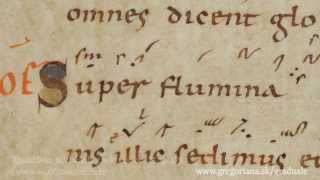 omnes dicent glo
of Super flumina
nis illic sedimus et
www.gregoriana.sk/graduale